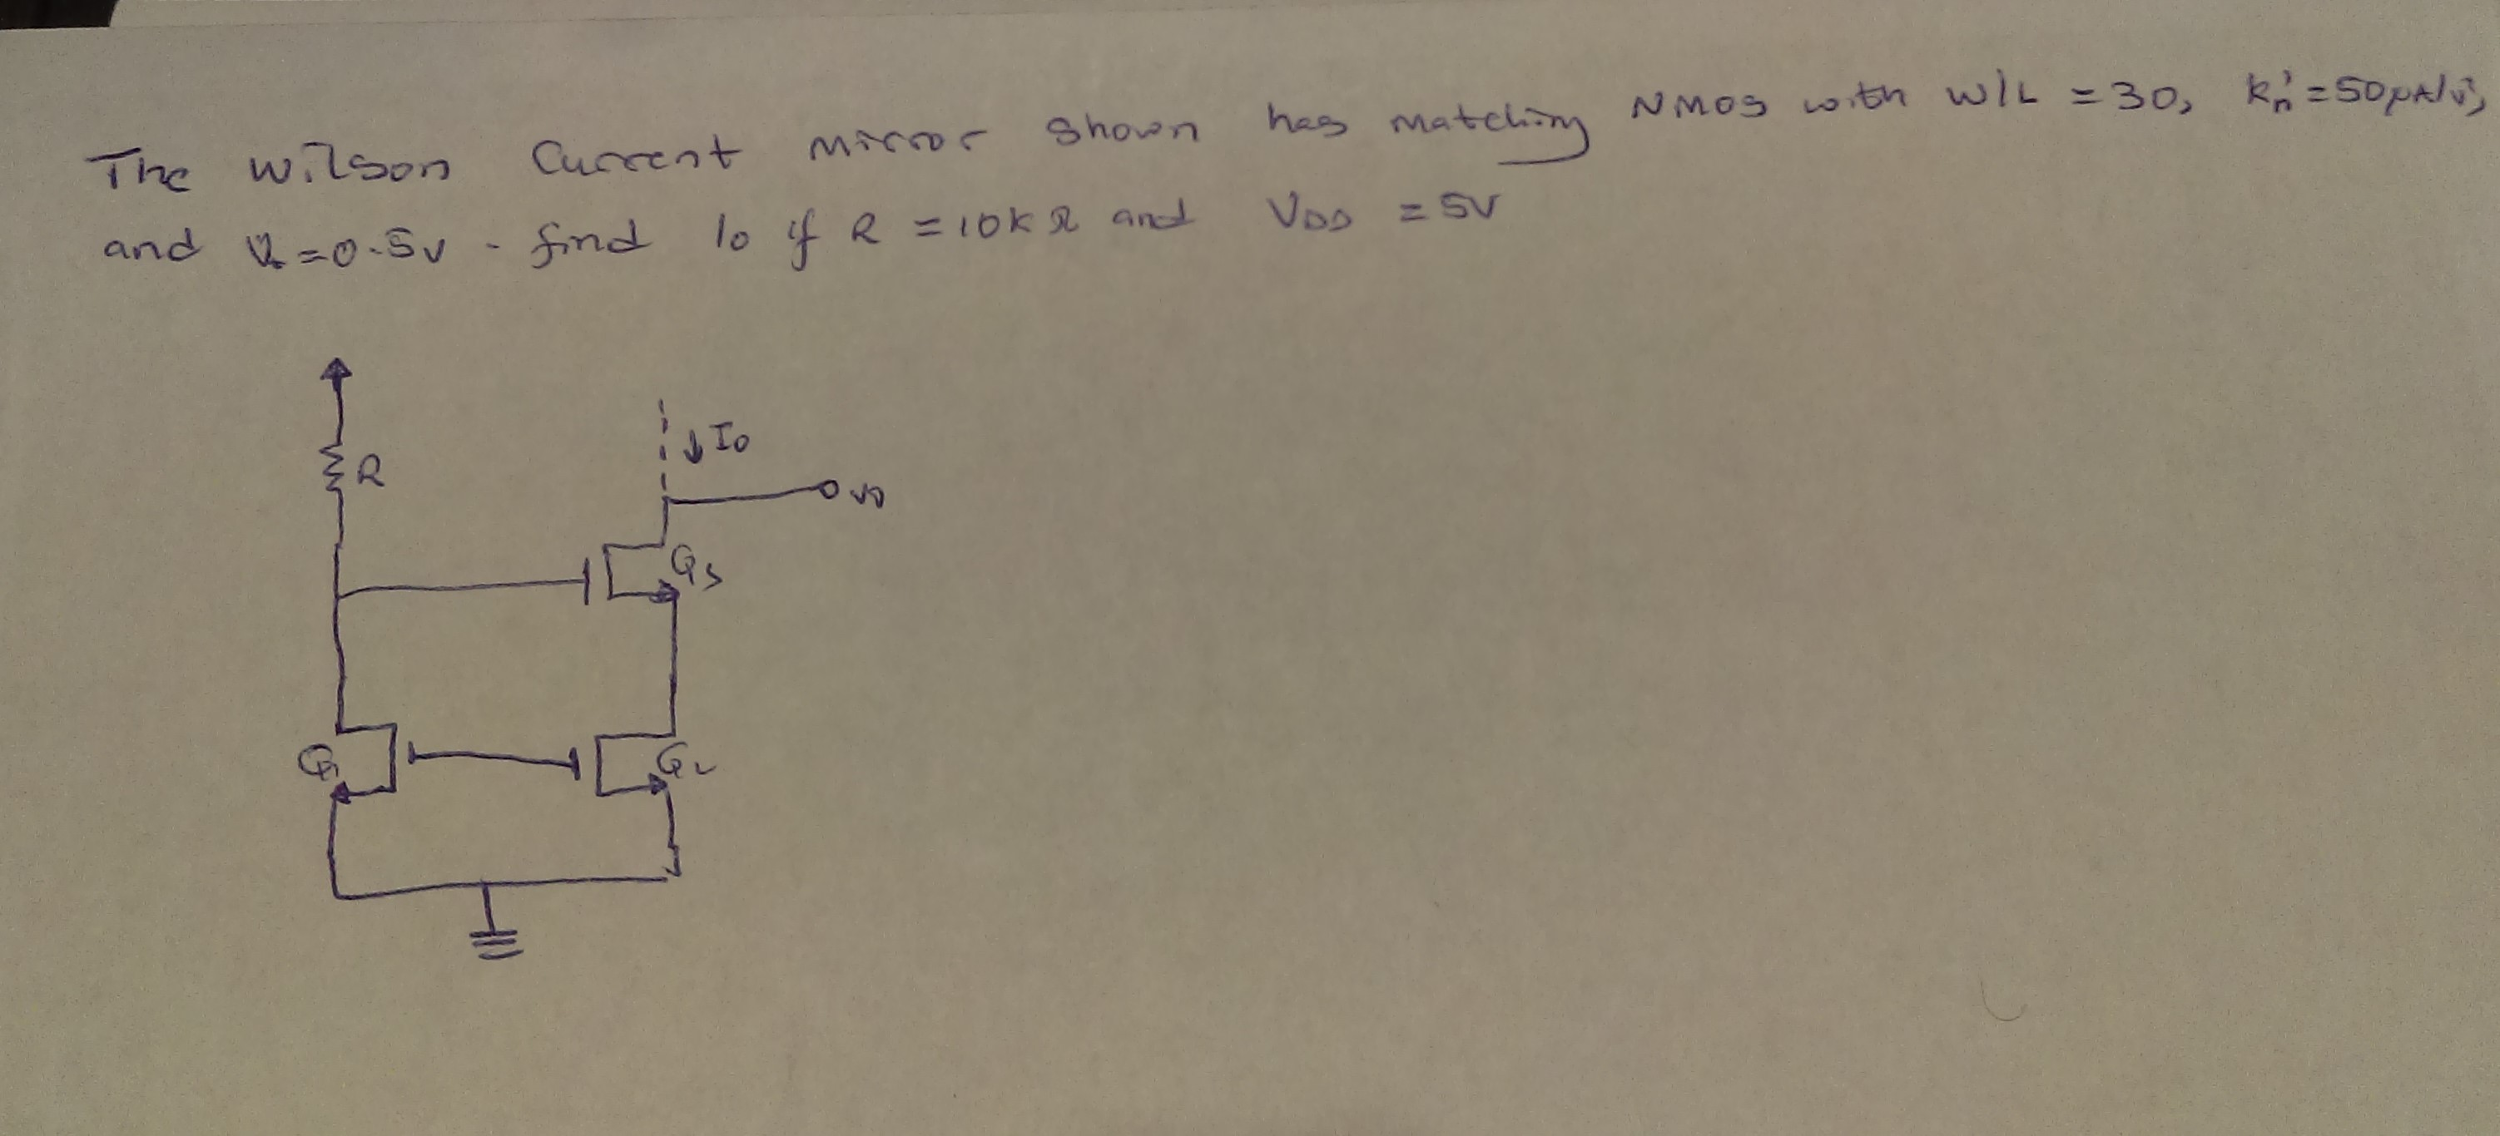 The Wilson Current mirror shown has matching NMOS with W/L = 30, k'n = 50μA/V²,
and Vt = 0.5V. find Io if R = 10kΩ and VDD = 5V
R
↓ Io
vo
Q3
Q1
Q2